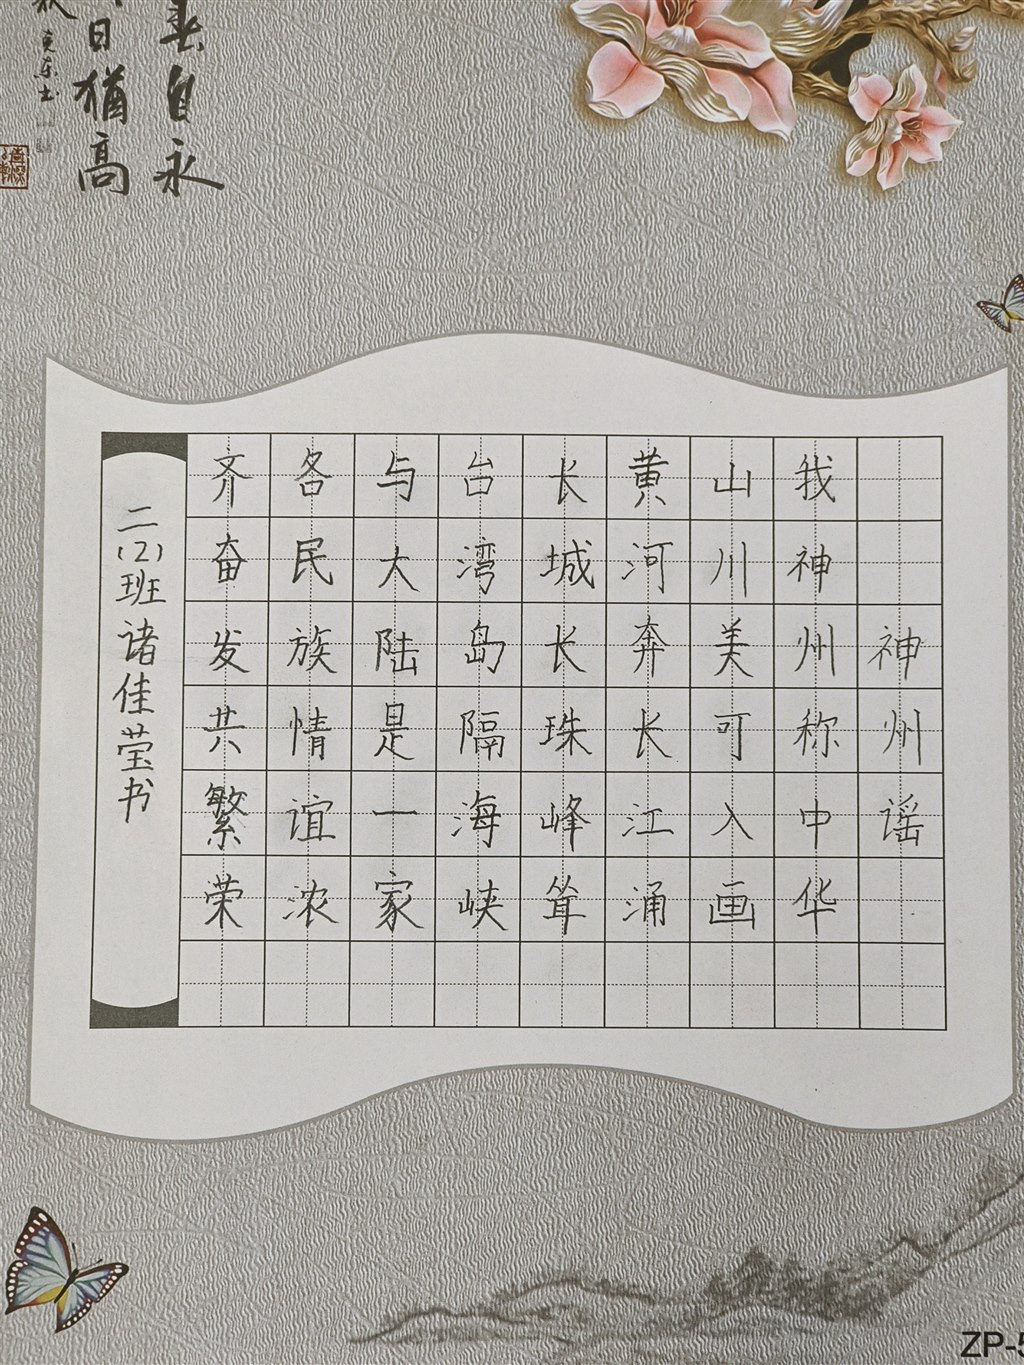 自永
日猶高
神州谣
我神州称中华
山川美可入画
黄河奔长江涌
长城长珠峰耸
台湾岛隔海峡
与大陆是一家
各民族情谊浓
齐奋发共繁荣
二(2)班诸佳莹书
ZP-5